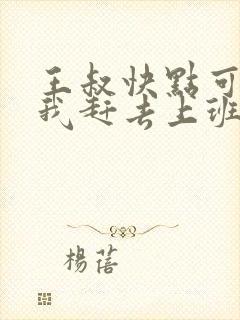 王叔快點可
我赶去上班
楊蓓